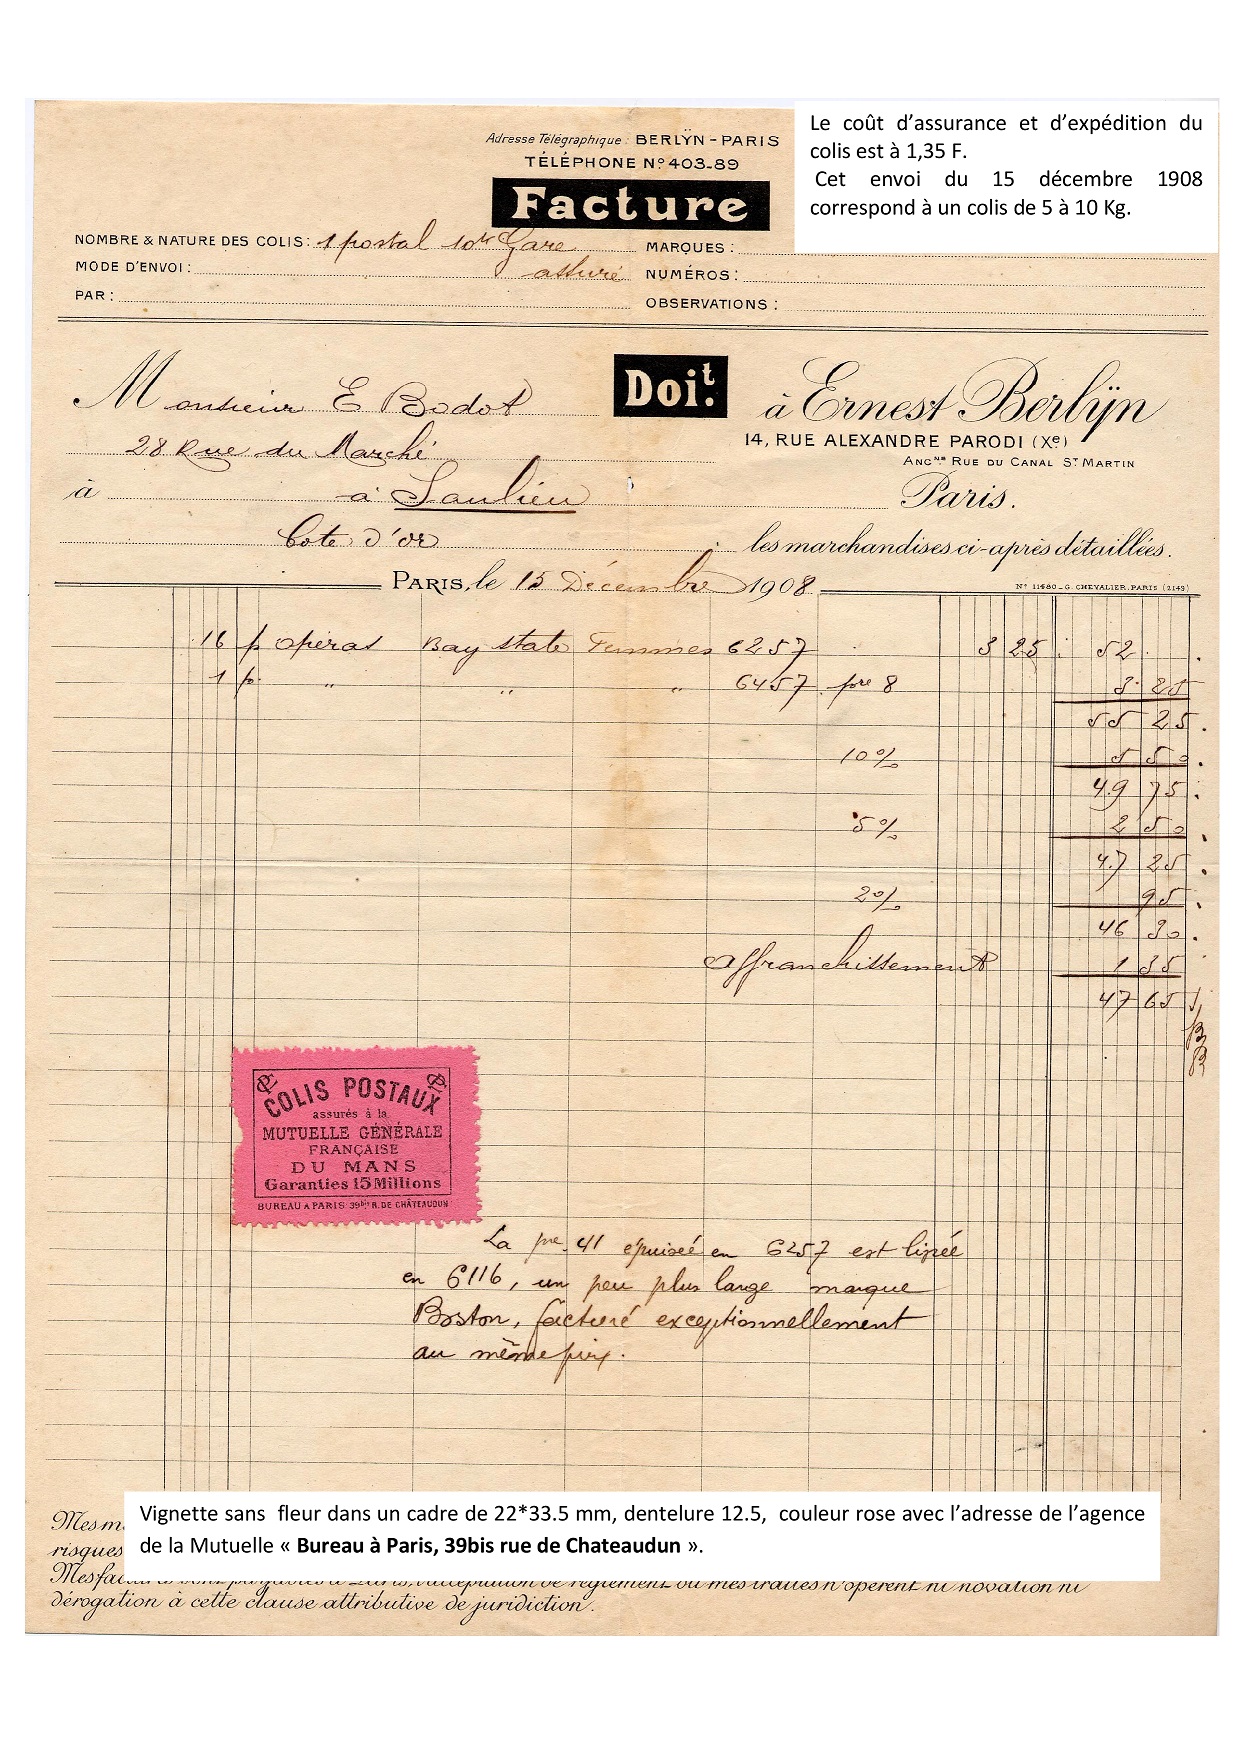 Adresse Télégraphique : BERLŸN-PARIS
TÉLÉPHONE Nº 403-89
Facture
Le coût d’assurance et d’expédition du
colis est à 1,35 F.
Cet envoi du 15 décembre 1908
correspond à un colis de 5 à 10 Kg.
NOMBRE & NATURE DES COLIS : 1 postal 10k Gare
MARQUES :
MODE D'ENVOI : assuré
NUMÉROS :
PAR :
OBSERVATIONS :
Monsieur E Bodot
Doit.
à Ernest Berlÿn
14, RUE ALEXANDRE PARODI (Xe)
28 Rue du Marché
ANCNE RUE DU CANAL ST MARTIN
à à Saulieu
Paris.
Cote d'or
les marchandises ci-après détaillées.
PARIS, le 15 Décembre 1908
Nº 11480 - G. CHEVALIER, PARIS (2149)
16 p opéras Bay state Femmes 6257 3 25 52
1 p. " " " 6457 pre 8 3 25
55 25
10% 5 50
49 75
5% 2 50
47 25
2% 95
46 30
affranchissement 1 35
47 65
COLIS POSTAUX
assurés à la
MUTUELLE GÉNÉRALE
FRANÇAISE
DU MANS
Garanties 15 Millions
BUREAU A PARIS 39bis R. DE CHÂTEAUDUN
La pre 41 épuisée en 6257 est
en 6116, un peu plus large marque
Boston, facturé exceptionnellement
au même prix.
Vignette sans fleur dans un cadre de 22*33.5 mm, dentelure 12.5, couleur rose avec l’adresse de l’agence
de la Mutuelle « Bureau à Paris, 39bis rue de Chateaudun ».
risques
Mes factures sont payables à Paris, l'acceptation de règlement ou mes traites n'opèrent ni novation ni
dérogation à cette clause attributive de juridiction.